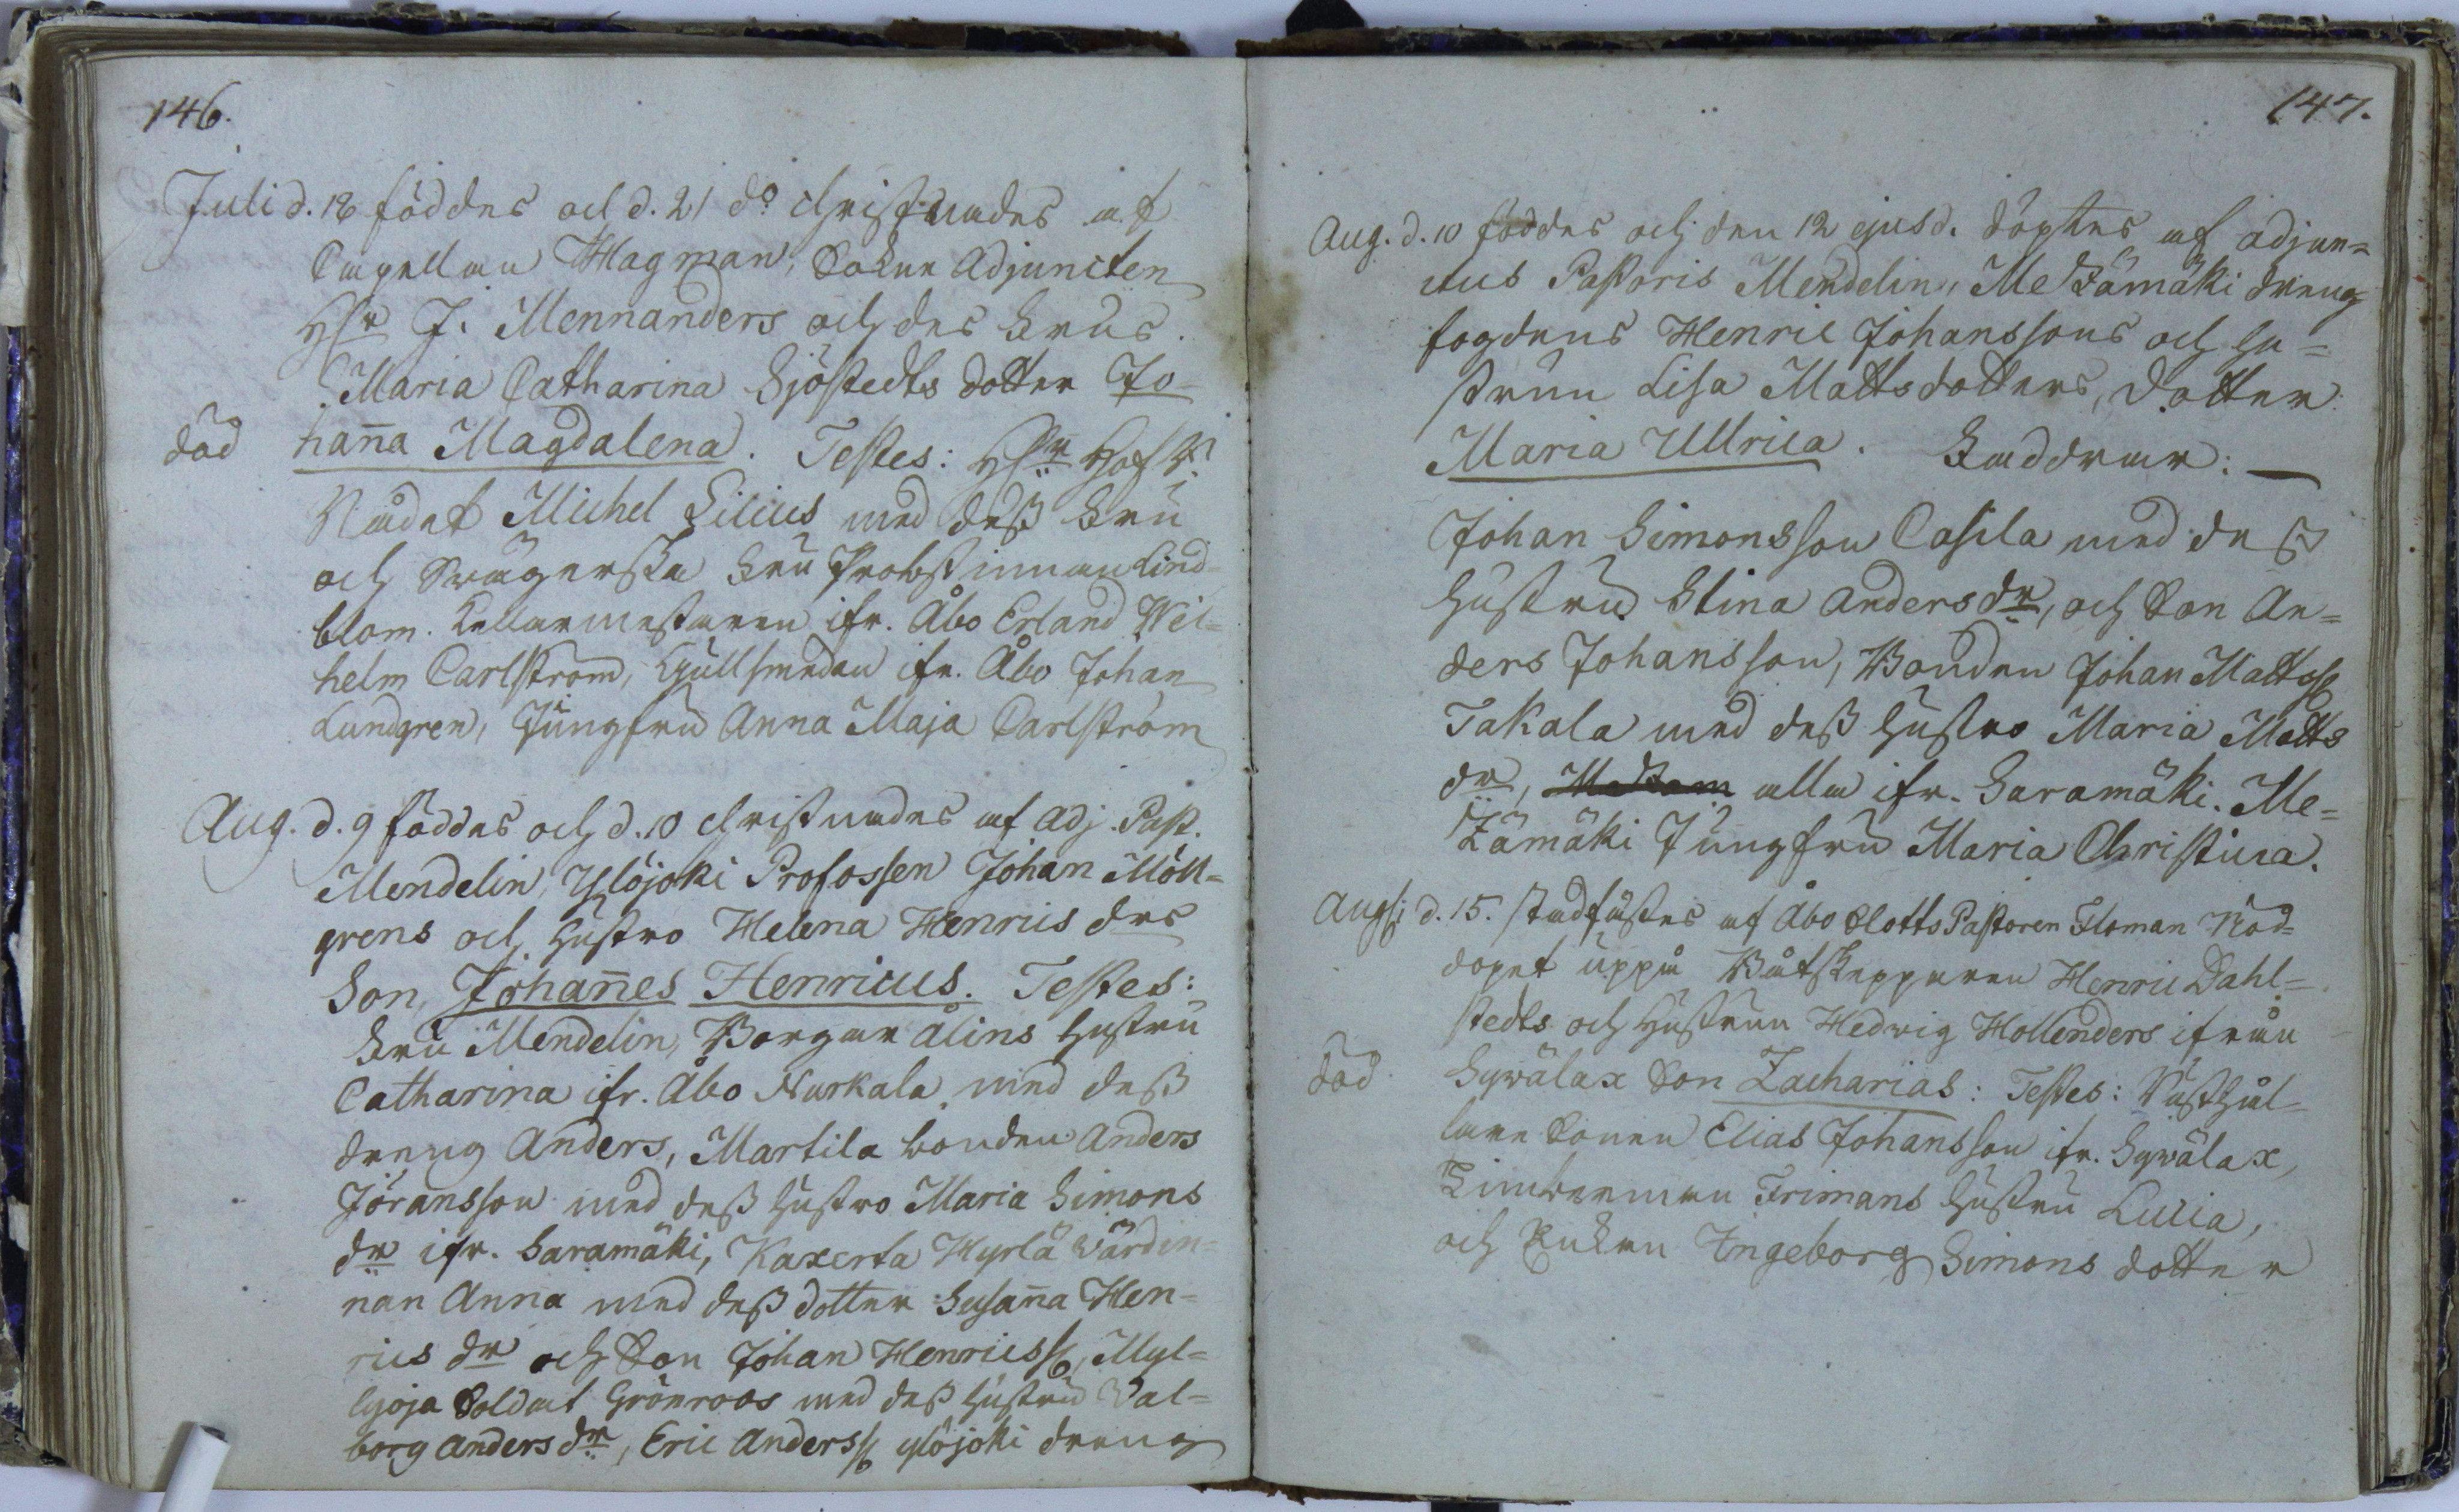 146.
Juli d. 18 föddes och d. 21 do christnades af
Capellan Hagman, Sokne Adjuncten
Hr J. Mennanders och des Frus
Maria Catharina Sjöstedts dotter Jo-
död hanna Magdalena. Testes: Hr Hof
Rådet Michel Lilius med dess Fru
och Svägerska Fru Probstinnan Lind-
blom. Kellarmestaren ifr. Åbo Erland Wil=
helm Carlström, Gullsmeden ifr. Åbo Johan
Lundgren, Jungfru Anna Maja Carlström
Aug. d. 9 föddes och d. 10 christnades af Adj. Past.
Mendelin, Ylöjoki Profossen Johan Möll=
grens och Hustro Helena Henrics drs
Son, Johannes Henricus. Testes:
Fru Mendelin, Borgar Ålins Hustru
Catharina ifr. Åbo Nurkala med dess
dreng Anders, Martila bonden Anders
Jöransson med dess Hustro Maria Simons
dr ifr. Saramäki, Kaxerta Hyrlä Wärdin=
nan Anna med dess dotter Susanna Hen=
rics dr och Son Johan Henricss., Myl=
lyoja Soldat Grönroos med dess Hustru Wal=
borg Anders dr, Eric Anderss. ylöjoki dreng
147.
Aug. d. 10 föddes och den 12 ejusd. döptes af adjun=
ctus Pastoris Mendelin, Metzämäki dreng
fogdens Henric Johanssons och Hu=
struns Lisa Mattsdotters, dotter
Maria Ullrica. Faddrar: —
Johan Simonsson Casila med dess
Hustru Stina Anders dr, och Son An=
ders Johansson, Bonden Johan Mattss.
Takala med dess Hustro Maria Matts
dr, alla ifr. Saramäki. Me=
tzämäki Jungfru Maria Christina.
Augsi d. 15. stadfästes af Åbo Slotts Pastoren Floman Nöd=
dopet uppå Båtskepparen Henric Dahl=
stedts och Hustrun Hedvig Hollenders ifrån
död Sywälax Son Zacharias: Testes: Rusthål=
lare Sonen Elias Johansson ifr. Sywälax,
Timberman Frimans Hustru Lucia,
och Enkan Ingeborg Simons dotter